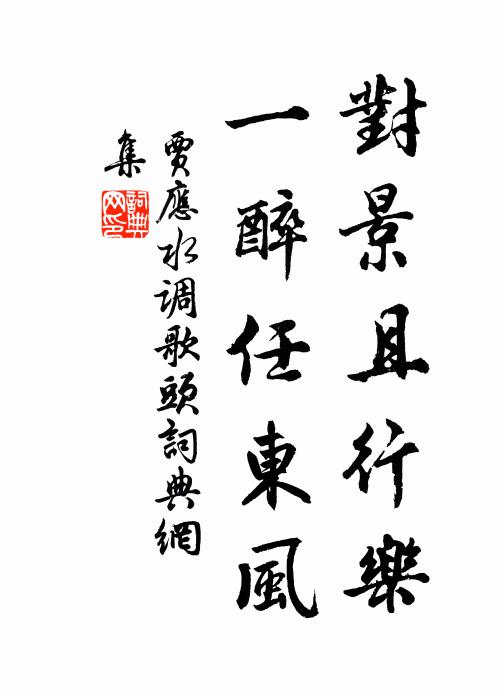 對景且行樂
一醉任東風
賈應水调歌頭詞典網
集
詞典
网印